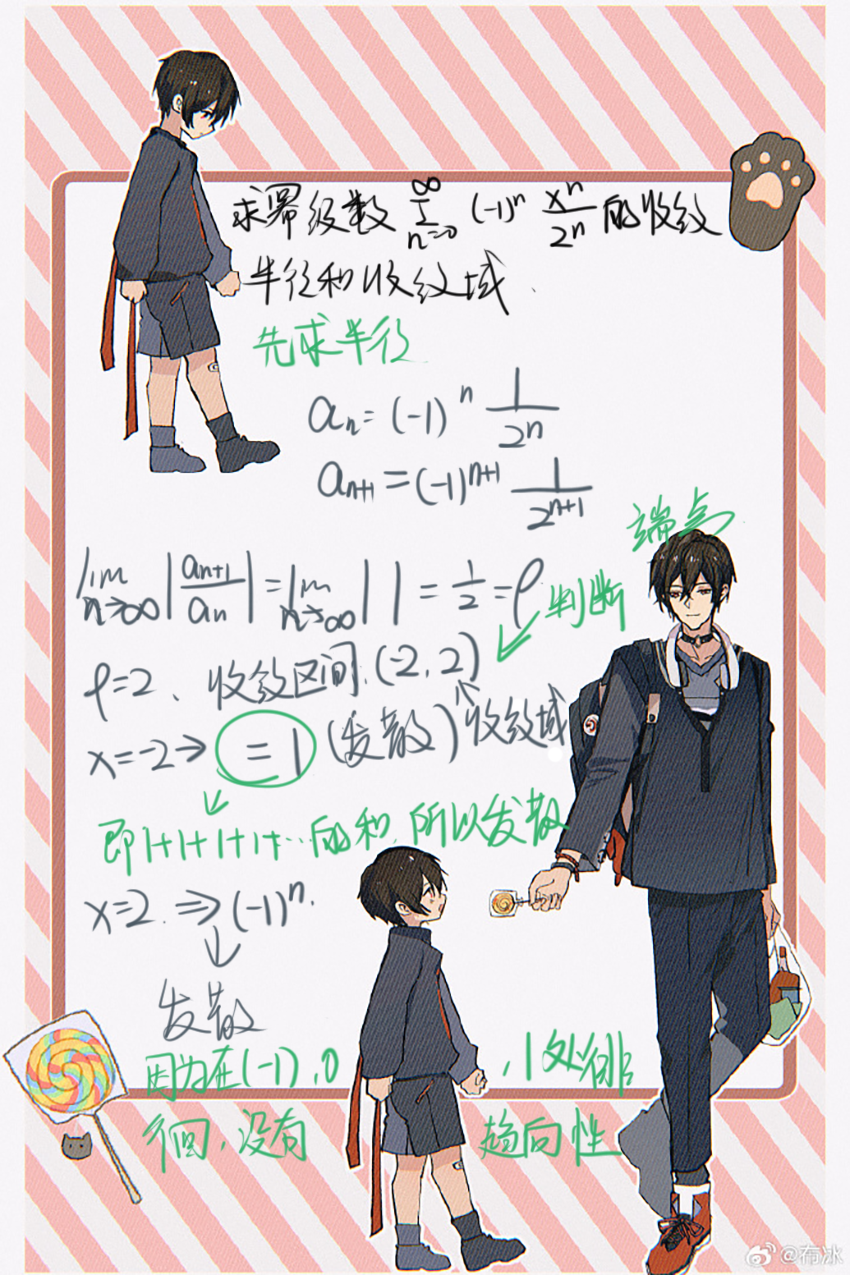 求幂级数 ∞ Σ n=0 (-1)^n x^n/2^n 的收敛
半径和收敛域.
先求半径
a_n = (-1)^n 1/2^n
a_{n+1} = (-1)^{n+1} 1/2^{n+1}
端点
lim n→∞ |a_{n+1}/a_n| = lim n→∞ | | = 1/2 = ρ
判断
ρ=2、收敛区间.(-2,2)
x=-2→ =1 (发散) 收敛域
即1+1+1+1+…的和,所以发散
x=2. ⇒ (-1)^n.
发散
因为在(-1),0,1处徘
徊,没有趋向性
@布冰